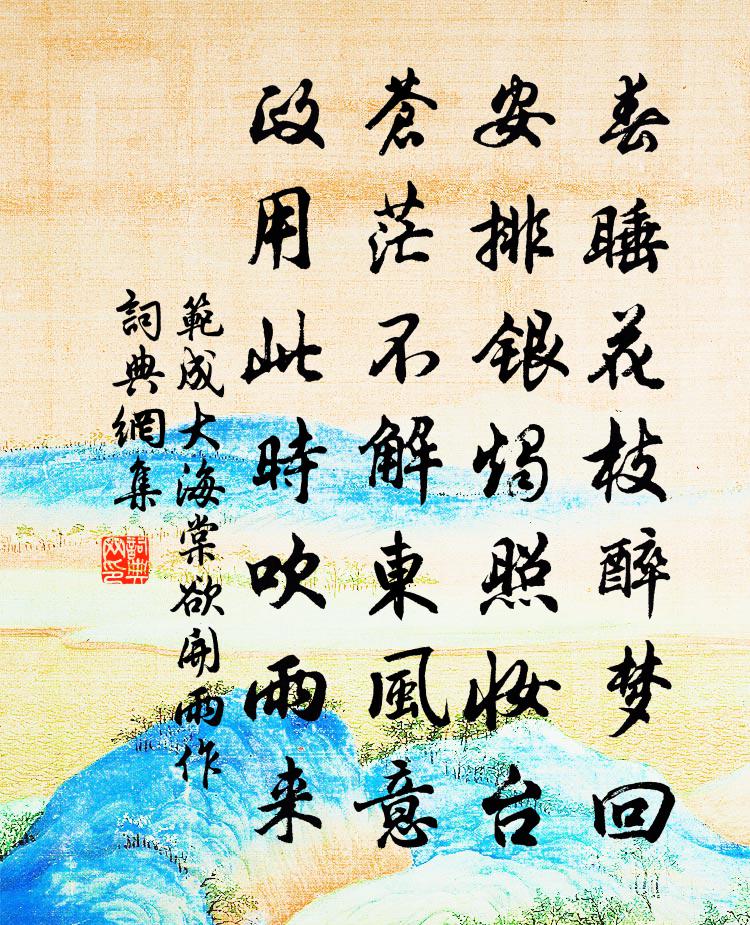 春睡花枝醉梦回
安排银烛照妆台
蒼茫不解東風意
政用此時吹雨来
範成大海棠欲開雨作
詞典網集
詞典網印